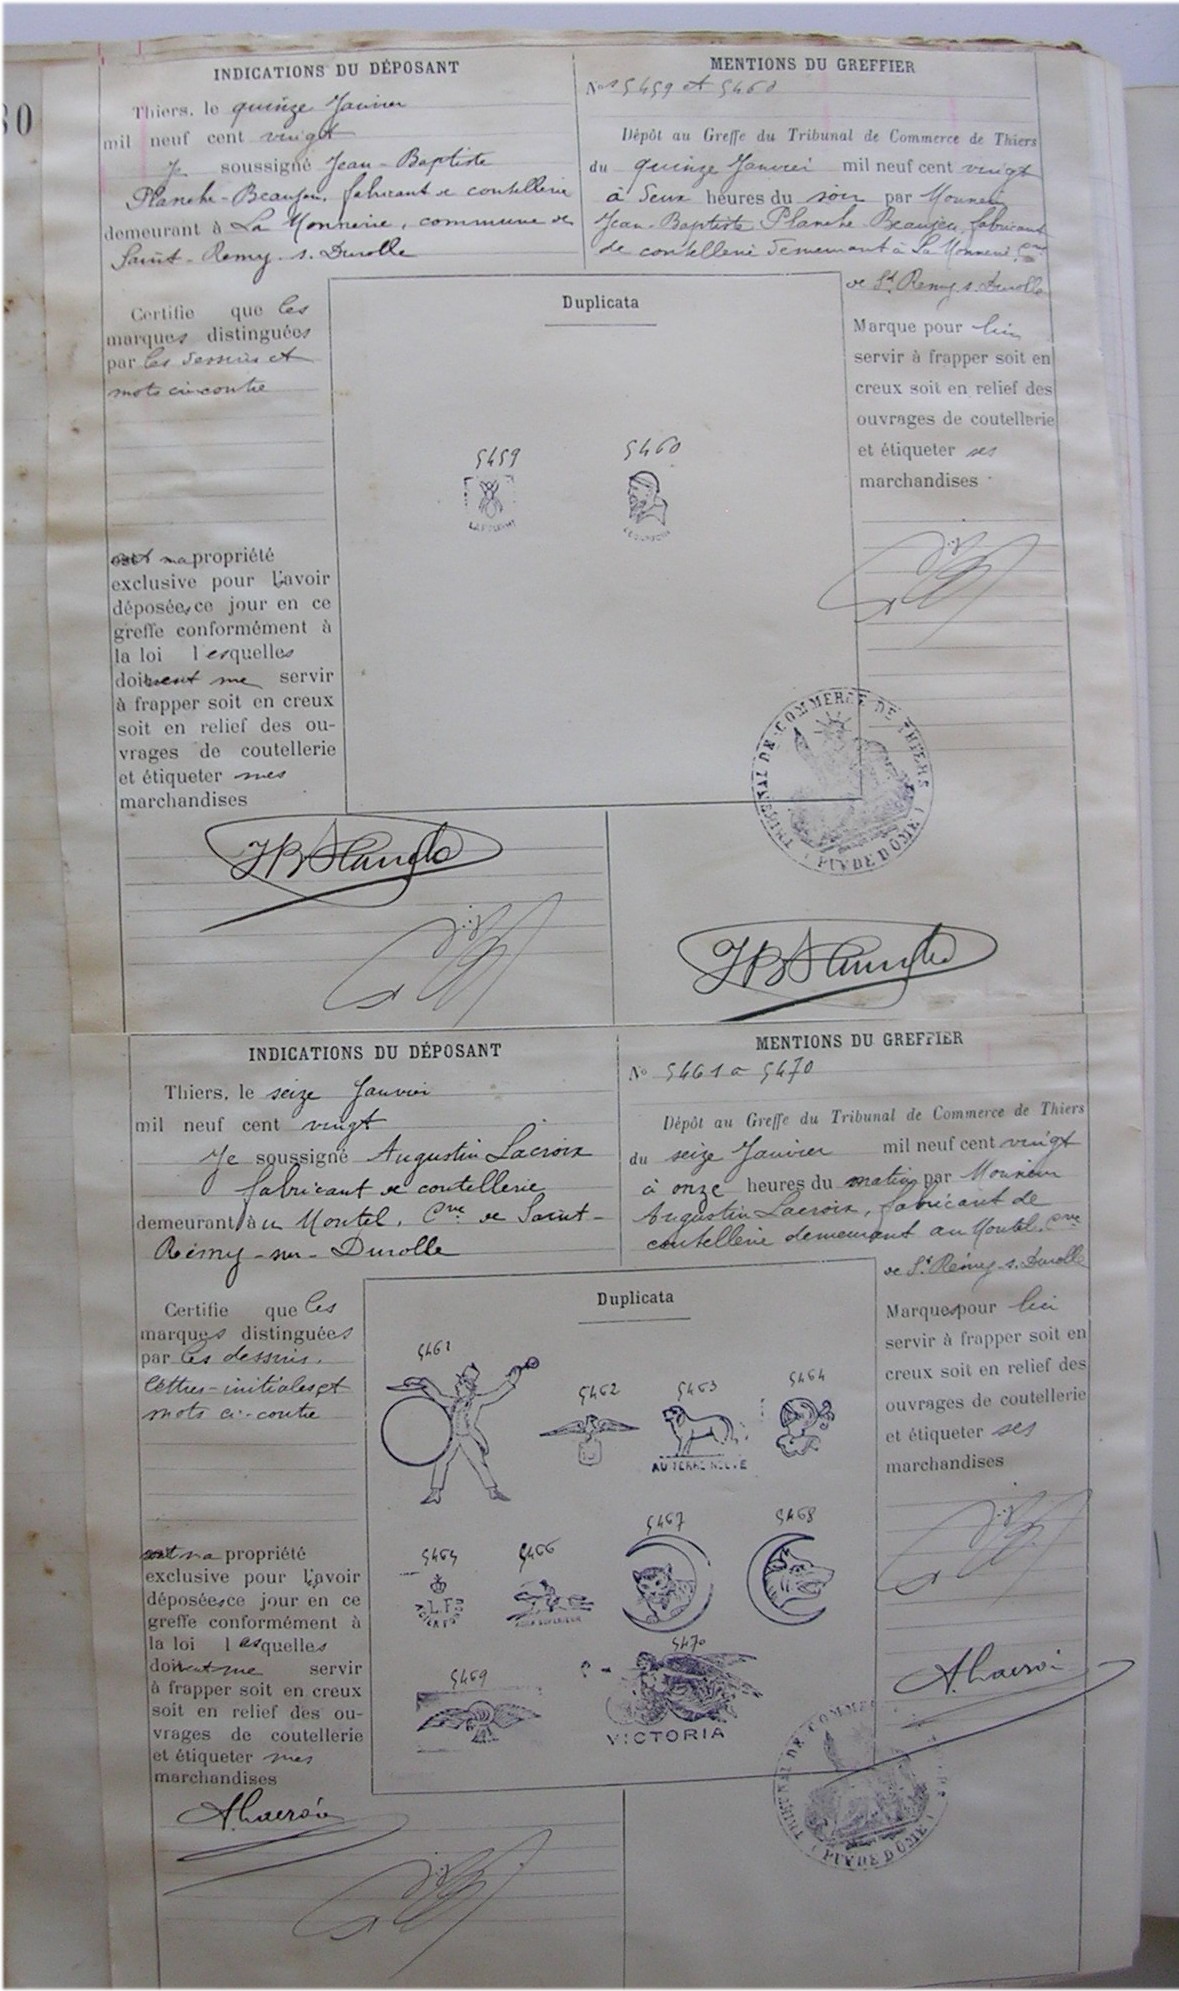 80
INDICATIONS DU DÉPOSANT
Thiers, le quinze Janvier
mil neuf cent vingt
Je soussigné Jean-Baptiste
Planche-Beaujeu, fabricant de coutellerie
demeurant à La Monnerie, commune de
Saint-Remy-s. Durolle
Certifie que les
marques distinguées
par les dessins et
mots ci-contre
sont ma propriété
exclusive pour l'avoir
déposées ce jour en ce
greffe conformément à
la loi lesquelles
doivent me servir
à frapper soit en creux
soit en relief des ou-
vrages de coutellerie
et étiqueter mes
marchandises
MENTIONS DU GREFFIER
Nos 5459 et 5460
Dépôt au Greffe du Tribunal de Commerce de Thiers
du quinze Janvier mil neuf cent vingt
à deux heures du soir par Monsieur
Jean-Baptiste Planche-Beaujeu, fabricant
de coutellerie demeurant à La Monnerie, cne
de St Remy s. Durolle
Duplicata
5459
5460
Marque pour lui
servir à frapper soit en
creux soit en relief des
ouvrages de coutellerie
et étiqueter ses
marchandises
TRIBUNAL DE COMMERCE DE THIERS
(PUY DE DÔME)
JB Planche
JB Planche
INDICATIONS DU DÉPOSANT
Thiers, le seize Janvier
mil neuf cent vingt
Je soussigné Augustin Lacroix
fabricant de coutellerie
demeurant au Montel, Cne de Saint-
Rémy-sur-Durolle
Certifie que les
marques distinguées
par les dessins,
lettres-initiales et
mots ci-contre
sont ma propriété
exclusive pour l'avoir
déposées ce jour en ce
greffe conformément à
la loi lesquelles
doivent me servir
à frapper soit en creux
soit en relief des ou-
vrages de coutellerie
et étiqueter mes
marchandises
A. Lacroix
MENTIONS DU GREFFIER
No 5461 a 5470
Dépôt au Greffe du Tribunal de Commerce de Thiers
du seize Janvier mil neuf cent vingt
à onze heures du matin par Monsieur
Augustin Lacroix, fabricant de
coutellerie demeurant au Montel, cne
de St Rémy-s. Durolle
Duplicata
5461
5462
5463
5464
AU TERRE NEUVE
5465
5466
5467
5468
L.F
5469
5470
VICTORIA
Marques pour lui
servir à frapper soit en
creux soit en relief des
ouvrages de coutellerie
et étiqueter ses
marchandises
A. Lacroix
TRIBUNAL DE COMMERCE
(PUY DE DÔME)